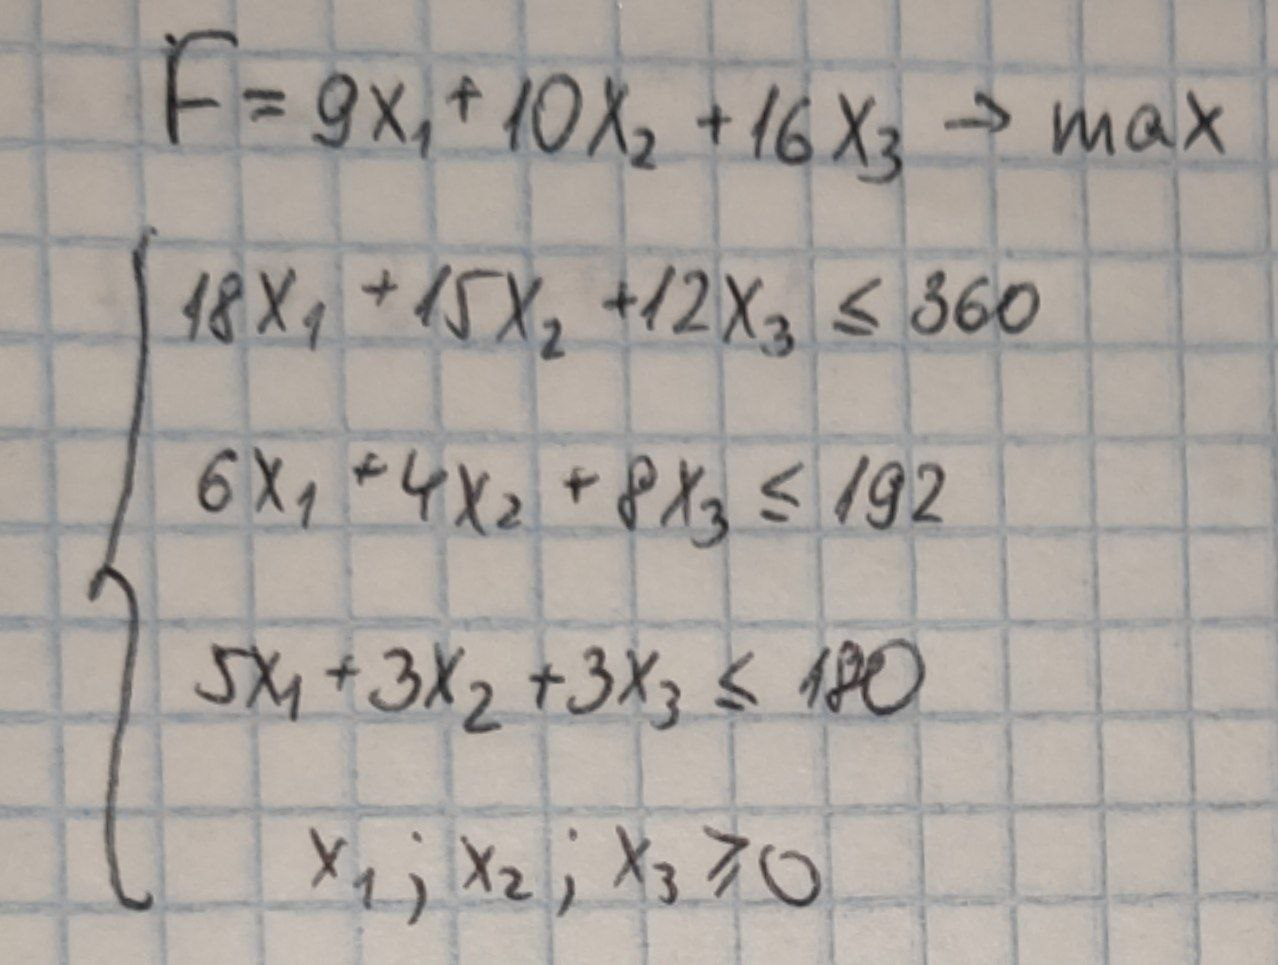 F = 9x₁ + 10x₂ + 16x₃ → max
18x₁ + 15x₂ + 12x₃ ≤ 360
6x₁ + 4x₂ + 8x₃ ≤ 192
5x₁ + 3x₂ + 3x₃ ≤ 180
x₁; x₂; x₃ ≥ 0